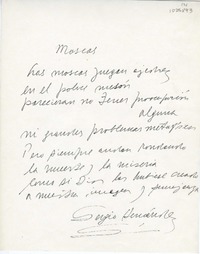 Moscas
Las moscas juegan ajedrez
en el pobre mesón
parecieran no tener preocupación
alguna
ni grandes problemas metafísicos
Pero siempre andan rondando
la muerte y la miseria
como si Dios las hubiese creado
a nuestra imagen y semejanza
Sergio Hernández